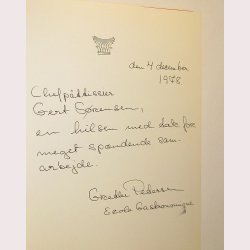 den 4 december
1978.
Chefpâtissier
Gert Sørensen,
en hilsen med tak for
meget spændende sam-
arbejde.
Grethe Pedersen
Ecole Gastronomique